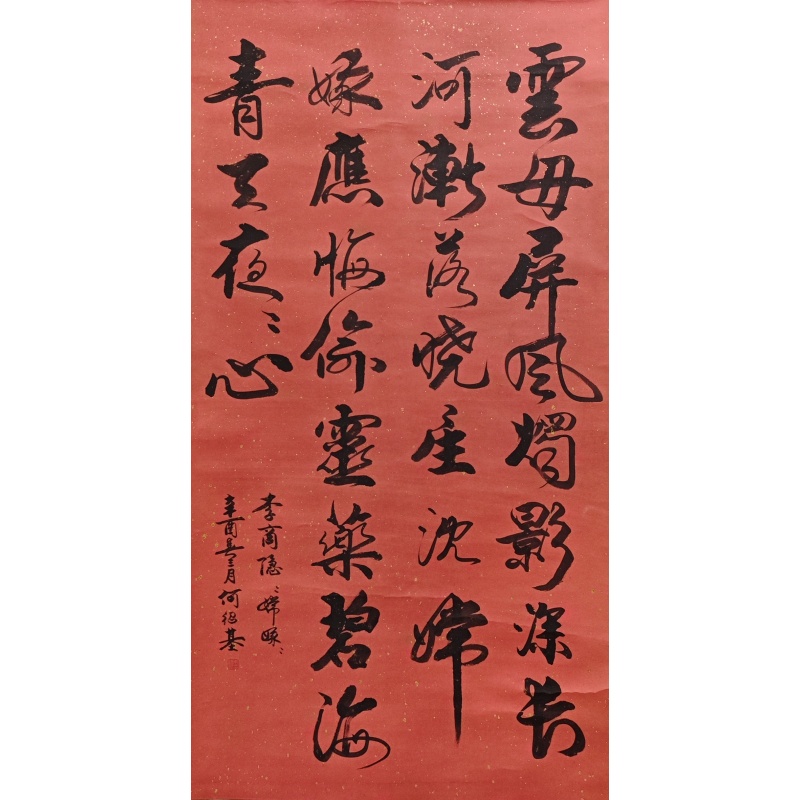 雲母屏風燭影深長
河漸落曉星沈嫦
娥應悔偷靈藥碧海
青天夜〻心
李商隱〻嫦娥〻
辛酉春三月何紹基